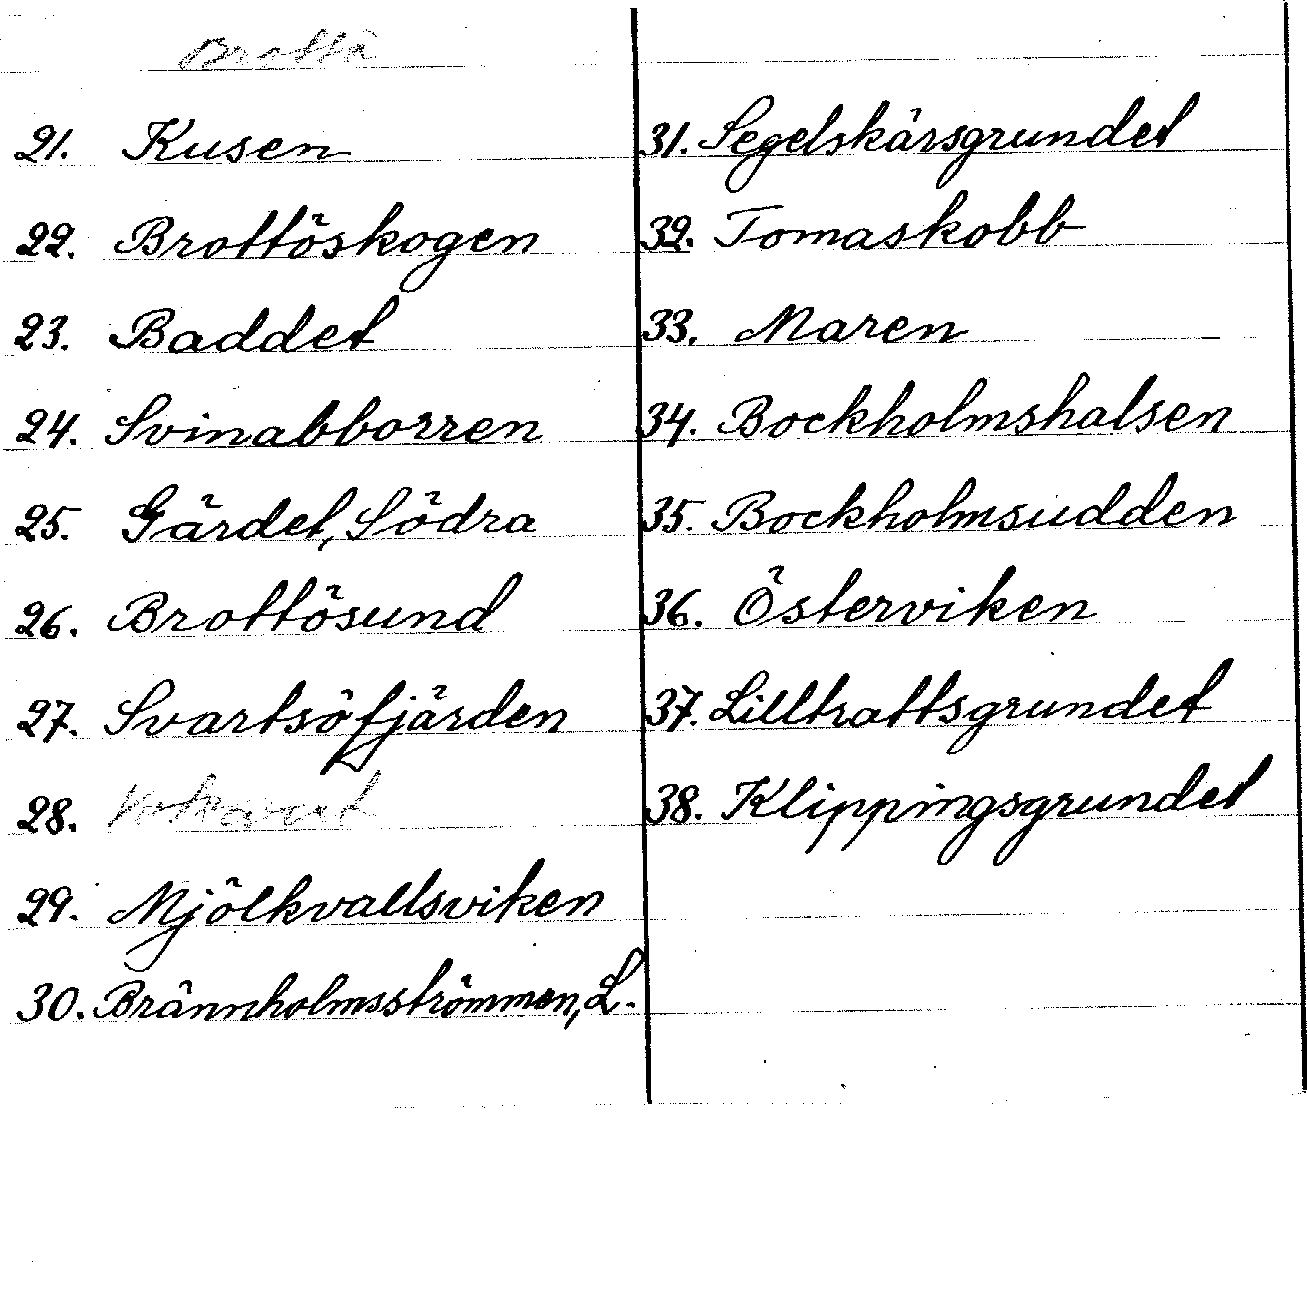 Brottö
21. Kusen
22. Brottöskogen
23. Baddet
24. Svinabborren
25. Gärdet, Södra
26. Brottösund
27. Svartsöfjärden
28.
29. Mjölkvallsviken
30. Brännholmsströmmen, L.
31. Segelskärsgrundet
32. Tomaskobb
33. Maren
34. Bockholmshalsen
35. Bockholmsudden
36. Österviken
37. Lilltrattsgrundet
38. Klippingsgrundet